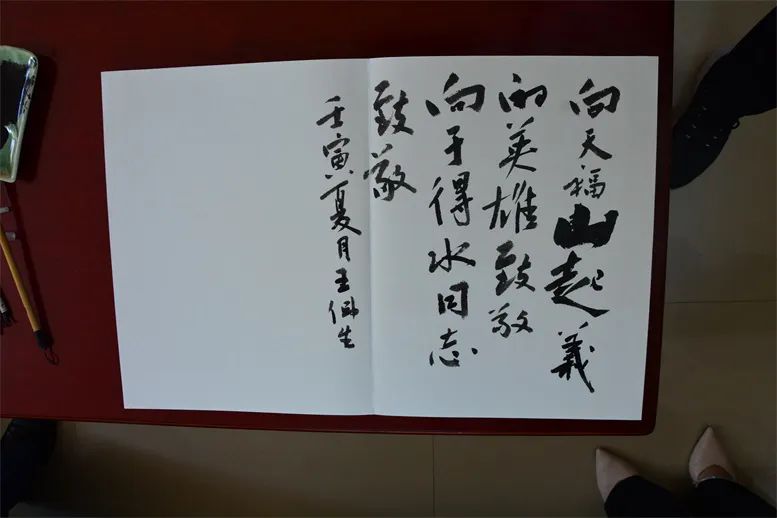 向天福山起义
的英雄致敬
向于得水同志
致敬
壬寅夏月王佩生